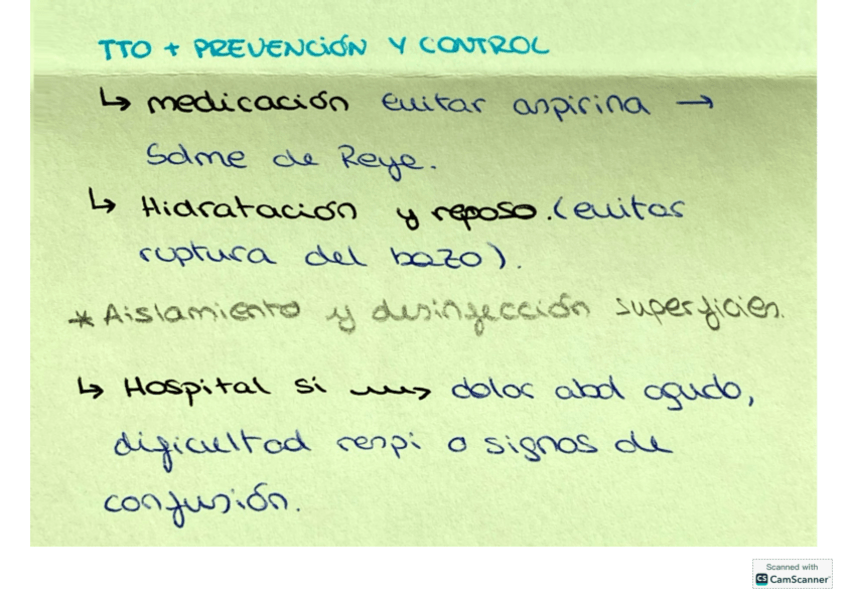 TTO + PREVENCIÓN Y CONTROL
↳ medicación evitar aspirina →
Sdme de Reye.
↳ Hidratación y reposo. (evitar
ruptura del bazo).
* Aislamiento y desinfección superficies.
↳ Hospital si ⟿ dolor abd agudo,
dificultad respi o signos de
confusión.
Scanned with
CS CamScanner